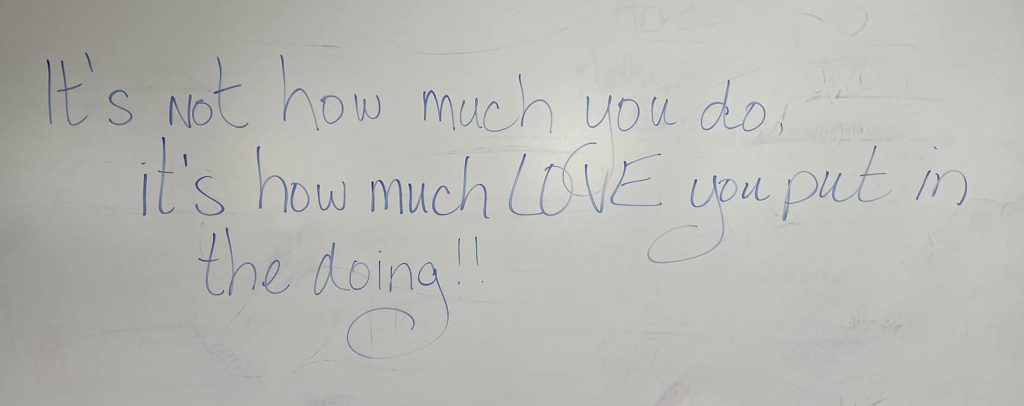 It's Not how much you do,
it's how much LOVE you put in
the doing!!